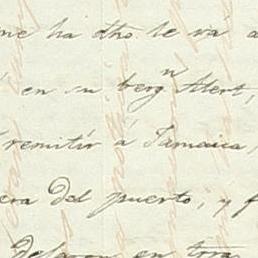 me ha dho. le vá a
en su berg.n Alert,
remitir á Jamaica,
era del puerto, y f
Dejaron en trra